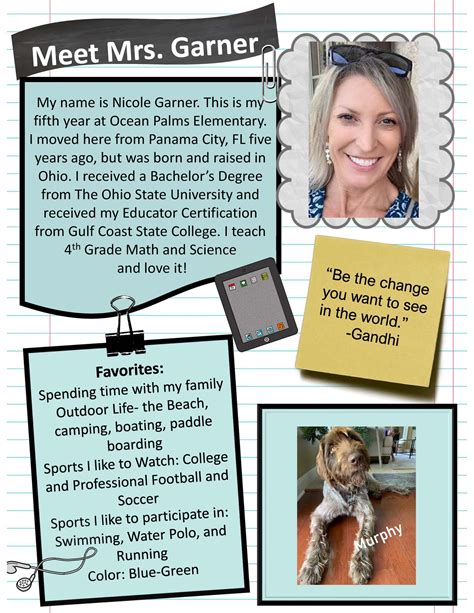 Meet Mrs. Garner
My name is Nicole Garner. This is my
fifth year at Ocean Palms Elementary.
I moved here from Panama City, FL five
years ago, but was born and raised in
Ohio. I received a Bachelor's Degree
from The Ohio State University and
received my Educator Certification
from Gulf Coast State College. I teach
4th Grade Math and Science
and love it!
"Be the change
you want to see
in the world."
-Gandhi
Favorites:
Spending time with my family
Outdoor Life- the Beach,
camping, boating, paddle
boarding
Sports I like to Watch: College
and Professional Football and
Soccer
Sports I like to participate in:
Swimming, Water Polo, and
Running
Color: Blue-Green
Murphy